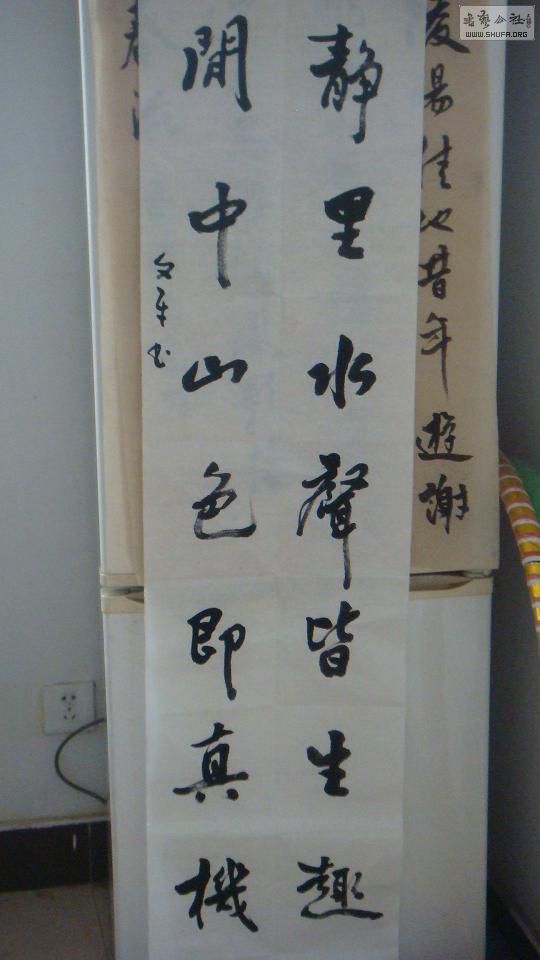 静里水聲皆生趣
閒中山色即真機
文平书
易佳心昔年遊謝
书艺公社
WWW.SHUFA.ORG